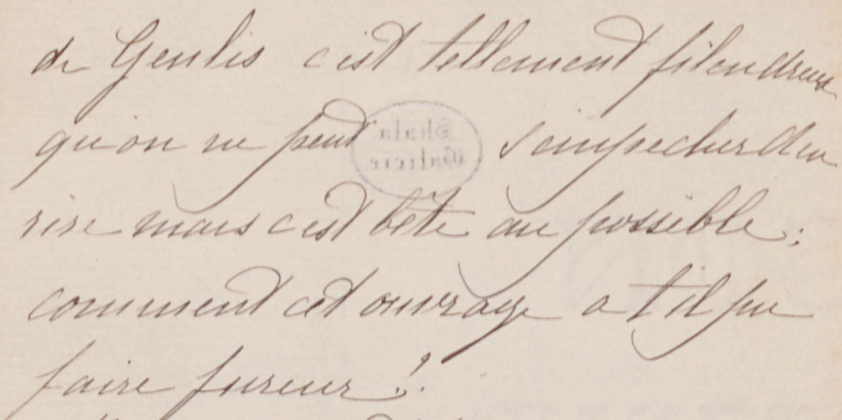 de Genlis c'est tellement filandreux
qu'on ne peut s'empecher d'en
rire mais c'est bête au possible :
comment cet ouvrage a t'il pu
faire fureur !?